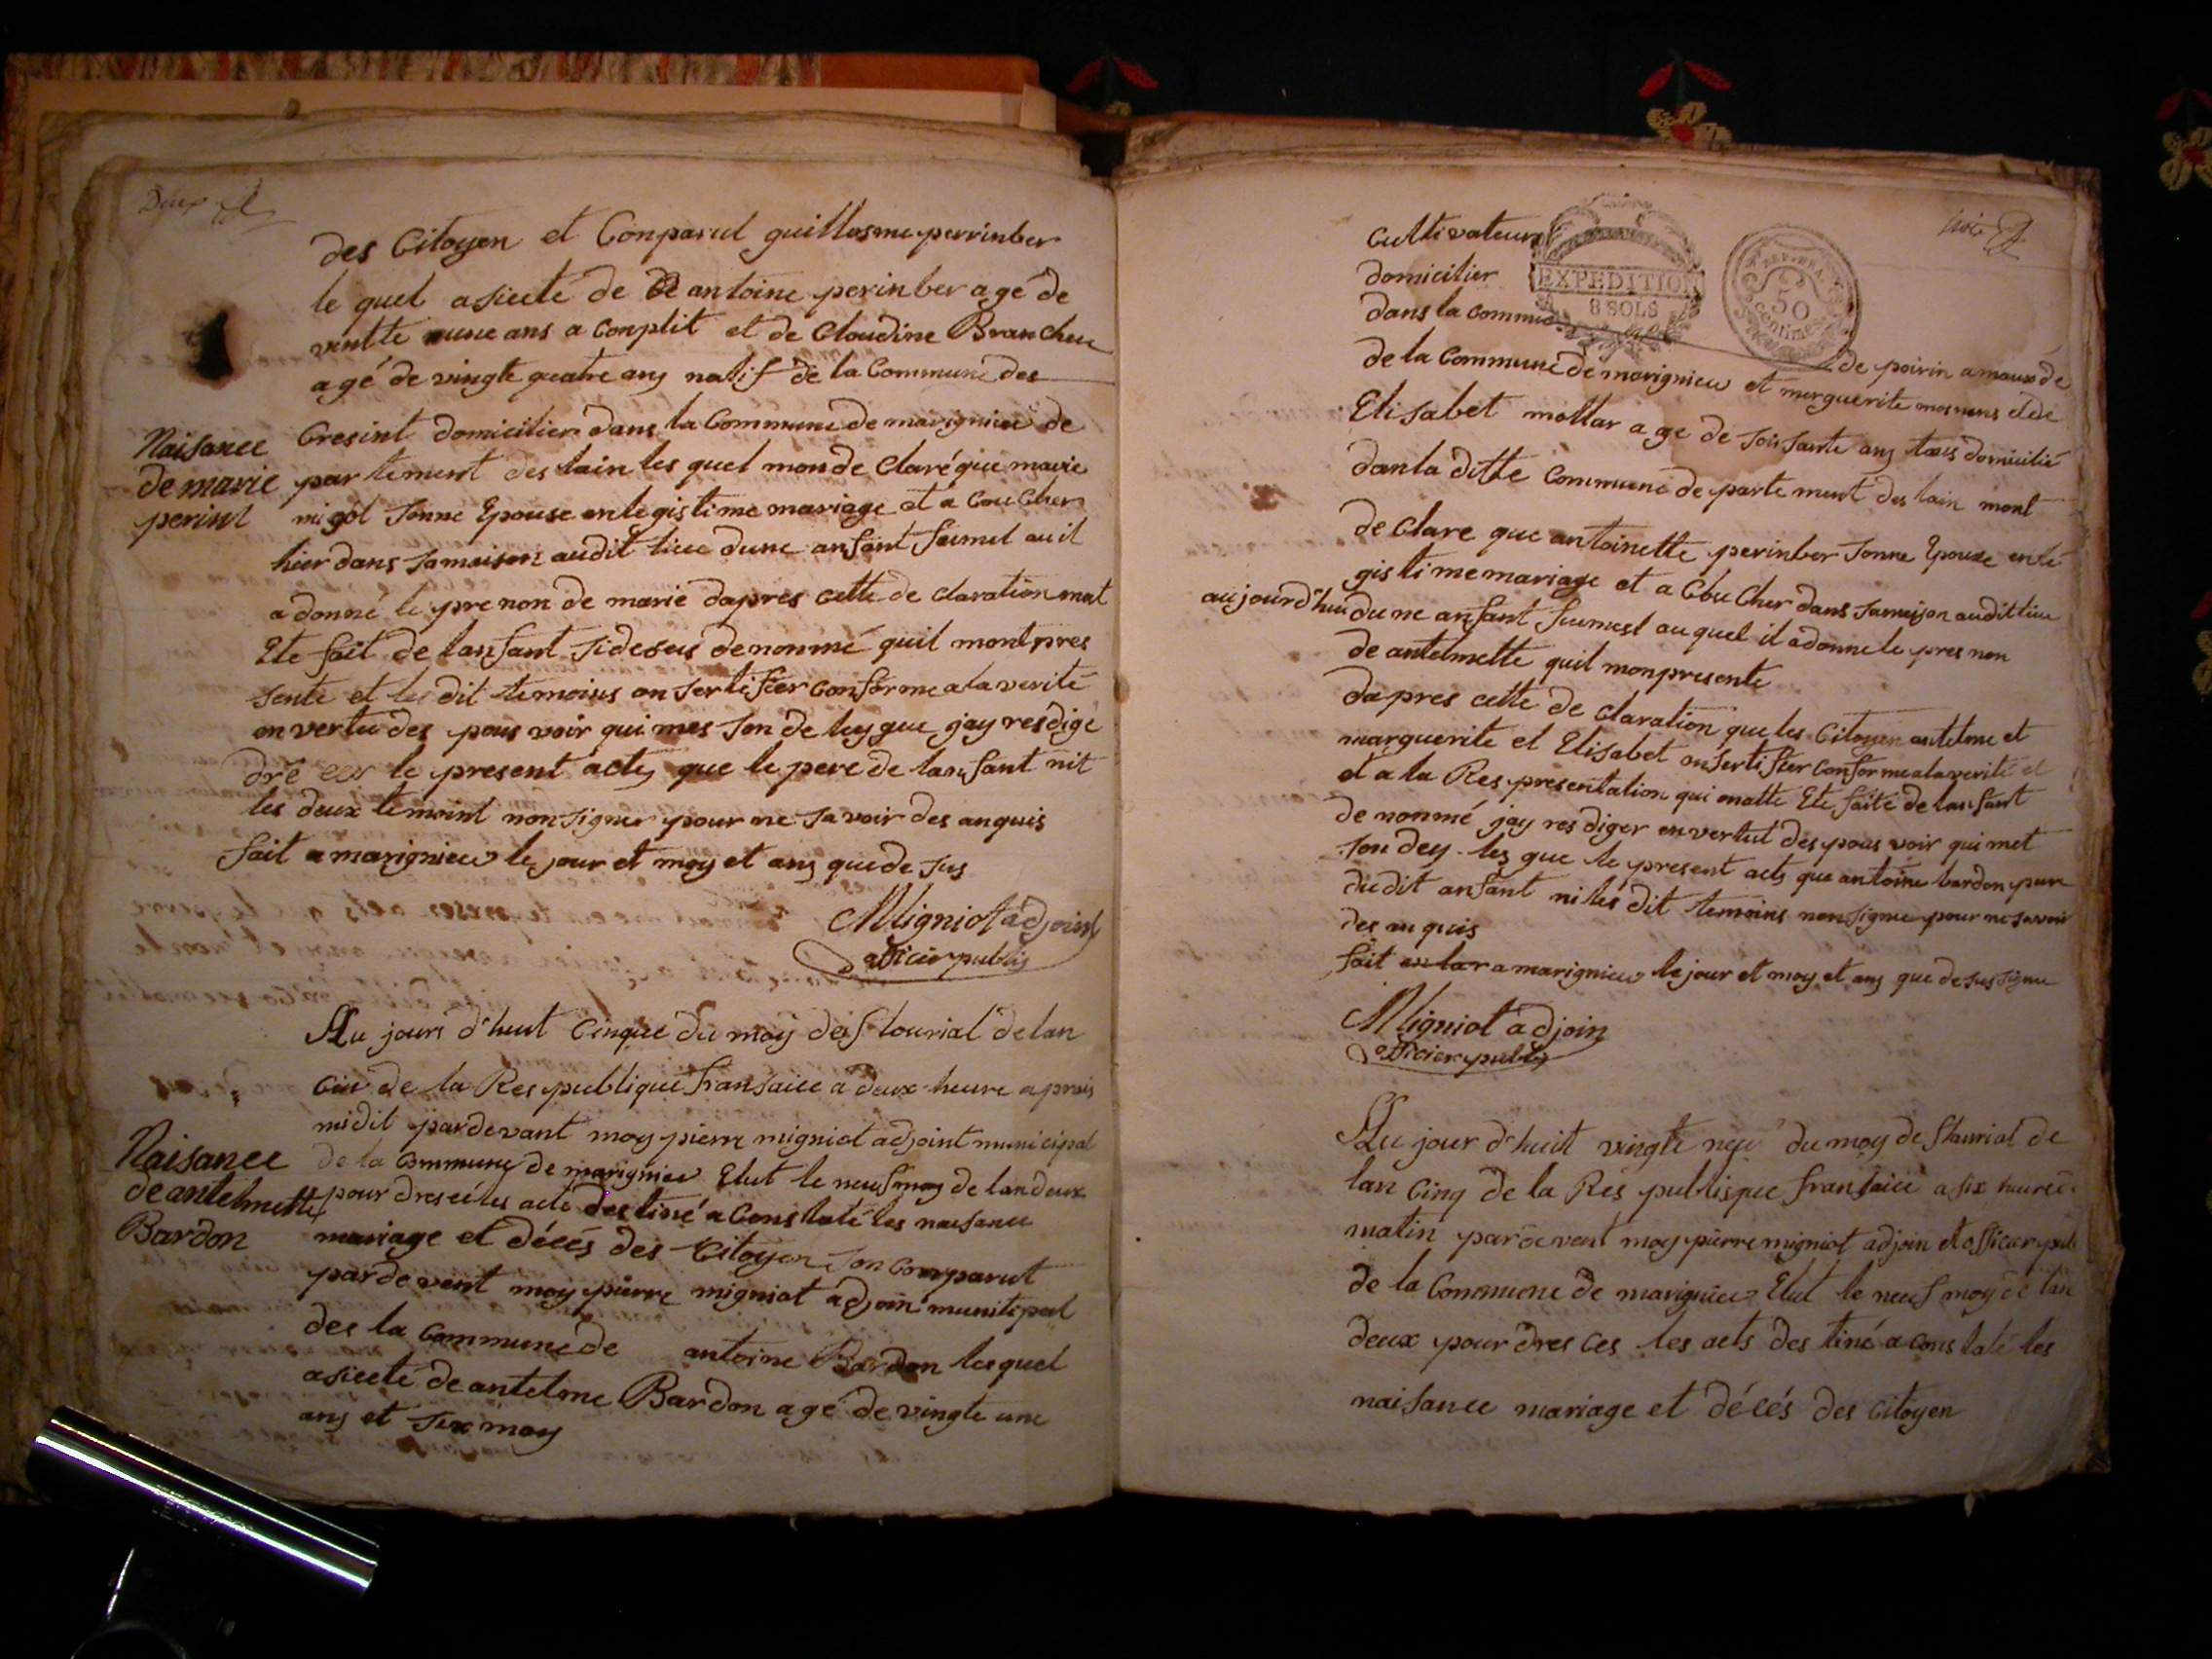 Deux
des Citoyen et Conparut guillosme perrinber
le quel asiecté de antoine perinber agé de
ventte eune ans a Conplit et de Cloudine Branchere
agé de vingte quatre ans natif de la Commune des
Naisance
de marie
perint
Cresint domicilier dans la Commune de marignieu de
partement des lain les quel mon de Claré que marie
migót Sonne Epouse en legistime mariage et a Coucher
hier dans Samaison audit lieu dune anfant feumel au il
a donné le prenon de marie dapres cette de claration mat
Ete fait de lanfant Sidesus denonmé quil montpres
sente et le dit temoins on sertifier Conforme a la verité
en vertu des pous voir qui mes Son de leygue jay resdigé
dré le present acts que le pere de lanfant nit
les deux temoint non signer pour ne savoir des anquis
fait a marignieu le jour et moy et ans que de Sus
Migniot adjoint
officier publis
Au jours d'huit Cinque du moy des flourial de lan
Cin de la Res publique fransaice a deux heure aprais
midit pardevant moy pierre migniot adjoint municipal
Naisance
de antelmette
Bardon
de la Commune de marignieu Elut le neuf moy de lan deux
pour dreséles acte destiné a Constaté les naisance
mariage et décés des Citoyen Son Comparut
pardevent moy pierre migniot adjoin munisipal
des la Commune de antoine Bardon lesquel
asiecté de antelme Bardon agé de vingte une
ans et six moy
trois
Cultivateur
EXPEDITION
8 SOLS
REP. FRA.
50
centimes
domicilier
dans la commune
de poirin amaux de
de la Commune de marignieu et merguerite mosnens et de
Elisabet mollar age de soissante ans tous domicilié
danla ditte Commune de parte ment des lain mont
de Clare que antoinette perinber Sonne Epouse en lé
gistime mariage et a Cou Cher dans Samaison audit lieu
aujourd'hui dune anfant feumest auquel il adonne le pres non
de antelmette quil monpresente
dapres cette de claration que les Citoyen antelme et
marguerite et Elisabet onsertifier Conforme a la verité et
et a la Res presentation qui matte Ete faite de lanfant
de nonmé jay res diger en vertut des pous voir qui met
Son dey les que le present acts que antoine bardon pere
dudit anfant ni les dit temoins non signe pour ne savoir
des anquis
fait a marignieu le jour et moy et ans que de sus signe
Migniot adjoin
officier publis
Au jour d'huit vingte neuf du moy de flaurial de
lan Cinq de la Res publisque fransaice a six heure
matin pardevent moy pierre migniot adjoin et officier pub
de la Commune de marignieu Elut le neuf moy de lan
deux pour dres ces les acts des tiné a Cons taté les
naisance mariage et décés des Citoyen